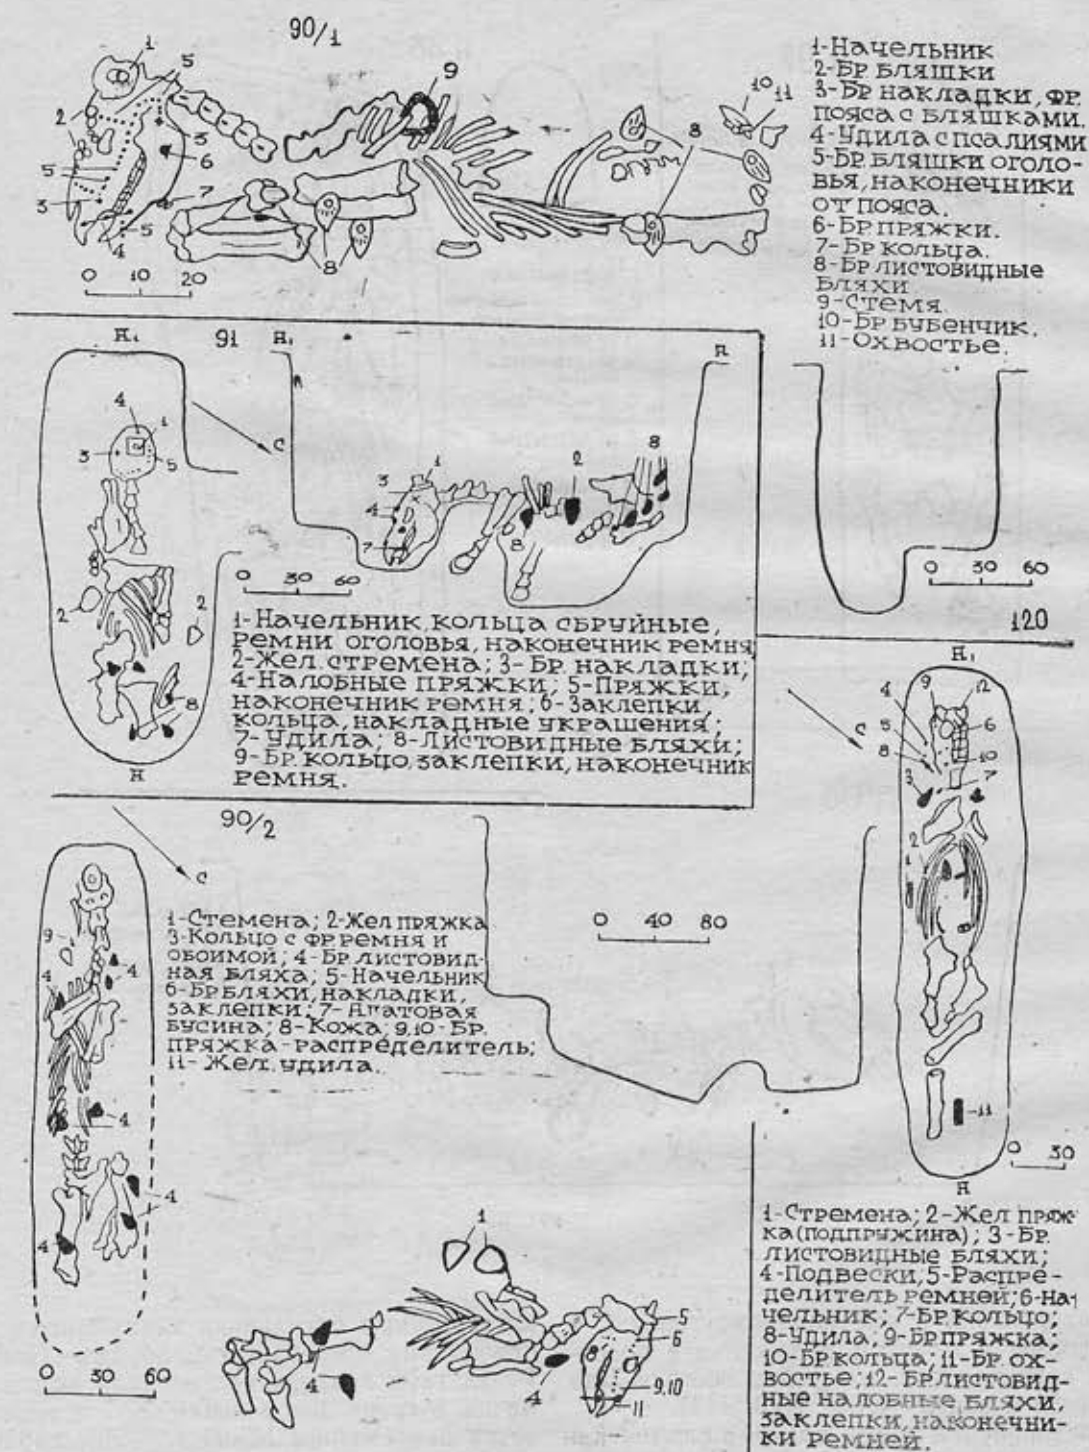 90/1
1-Начельник
2-Бр бляшки
3-Бр накладки, фр.
пояса с бляшками.
4-Удила с псалиями
5-Бр. бляшки оголо-
вья, наконечники
от пояса.
6-Бр пряжки.
7-Бр кольца.
8-Бр листовидные
бляхи
9-Стемя.
10-Бр бубенчик.
11-Охвостье.
1
5
2
5
3
4
5
3
6
7
9
8
8
10
11
0 10 20
91
А1
А1
А
С
4
1
3
5
2
2
8
А
1
3
4
7
2
8
8
0 30 60
0 30 60
120
1-Начельник, кольца сбруйные,
ремни оголовья, наконечник ремня
2-Жел. стремена; 3-Бр. накладки;
4-Налобные пряжки; 5-Пряжки,
наконечник ремня; 6-Заклепки,
кольца, накладные украшения;
7-Удила; 8-Листовидные бляхи;
9-Бр. кольцо, заклепки, наконечник
ремня.
90/2
С
9
4
4
4
4
4
1-Стемена; 2-Жел пряжка
3-Кольцо с фр ремня и
обоймой; 4-Бр. листовид-
ная бляха; 5-Начельник
6-Бр бляхи, накладки,
заклепки; 7-Агатовая
бусина; 8-Кожа; 9,10-Бр.
пряжка-распределитель;
11-Жел. удила.
0 40 80
0 30 60
1
4
4
5
6
8
9,10
11
А1
С
4
9
12
5
6
8
10
3
7
2
1
11
А
0 30
1-Стремена; 2-Жел пряж-
ка (подпружина); 3-Бр.
листовидные бляхи;
4-Подвески; 5-Распре-
делитель ремней; 6-На-
чельник; 7-Бр кольцо;
8-Удила; 9-Бр пряжка;
10-Бр кольца; 11-Бр. ох-
востье; 12-Бр листовид-
ные налобные бляхи,
заклепки, наконечни-
ки ремней.